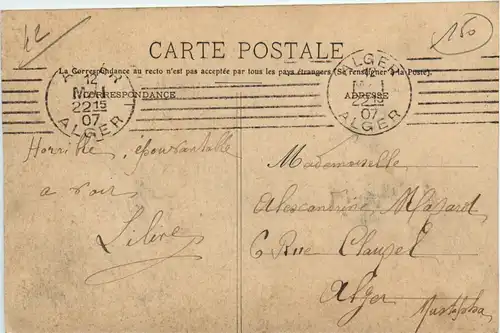 42
150
CARTE POSTALE
La Correspondance au recto n'est pas acceptée par tous les pays étrangers (Se renseigner à la Poste).
CORRESPONDANCE
ADRESSE
ALGER
12
22 15
07
ALGER
ALGER
22 15
07
ALGER
Horrible, épouvantable
a voir
Lilive
Mademoiselle
Alexandrine
6 Rue Clauzel
Alger
Mustapha